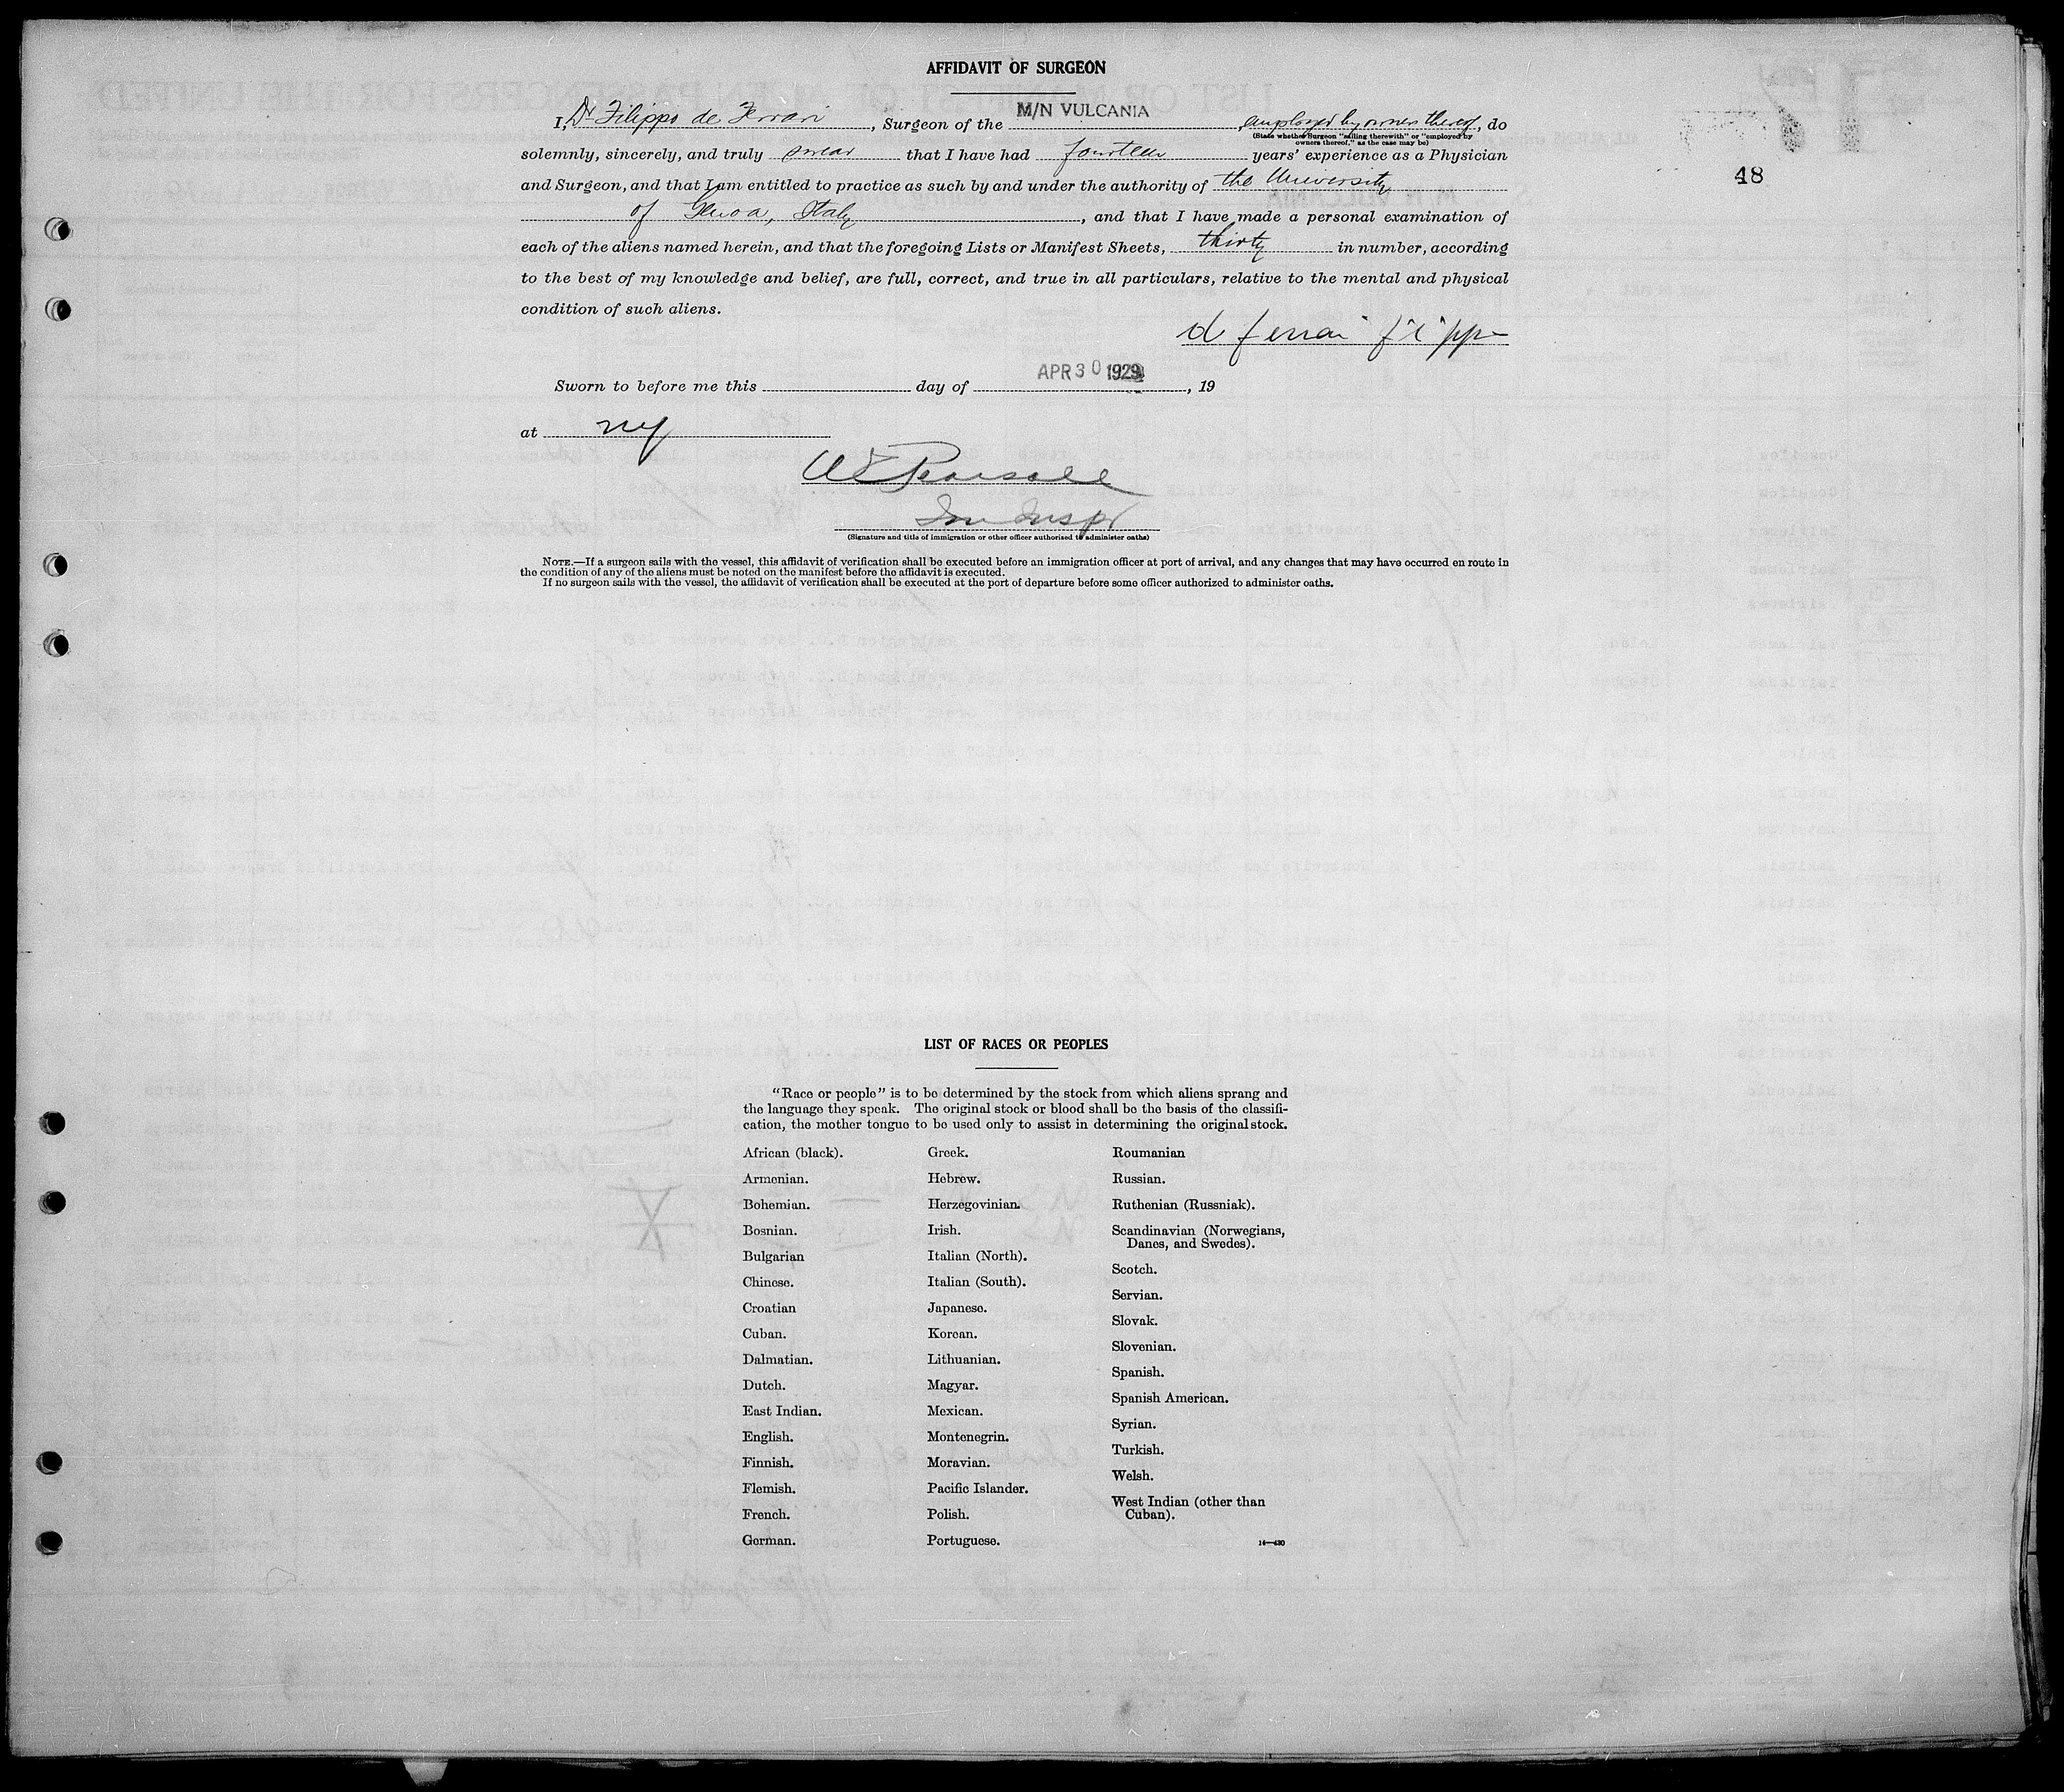 AFFIDAVIT OF SURGEON
48
I, Dr Filippo de Ferrari, Surgeon of the M/N VULCANIA, employed by owner thereof, do
(State whether Surgeon "sailing therewith" or "employed by
owners thereof," as the case may be)
solemnly, sincerely, and truly swear that I have had fourteen years' experience as a Physician
and Surgeon, and that I am entitled to practice as such by and under the authority of the University
of Genoa, Italy, and that I have made a personal examination of
each of the aliens named herein, and that the foregoing Lists or Manifest Sheets, thirty in number, according
to the best of my knowledge and belief, are full, correct, and true in all particulars, relative to the mental and physical
condition of such aliens.
de ferrari filippo
Sworn to before me this day of APR 30 1929, 19
at ny
Imm Inspr
(Signature and title of immigration or other officer authorised to administer oaths)
NOTE.—If a surgeon sails with the vessel, this affidavit of verification shall be executed before an immigration officer at port of arrival, and any changes that may have occurred en route in
the condition of any of the aliens must be noted on the manifest before the affidavit is executed.
If no surgeon sails with the vessel, the affidavit of verification shall be executed at the port of departure before some officer authorized to administer oaths.
LIST OF RACES OR PEOPLES
"Race or people" is to be determined by the stock from which aliens sprang and
the language they speak. The original stock or blood shall be the basis of the classifi-
cation, the mother tongue to be used only to assist in determining the original stock.
African (black).
Armenian.
Bohemian.
Bosnian.
Bulgarian
Chinese.
Croatian
Cuban.
Dalmatian.
Dutch.
East Indian.
English.
Finnish.
Flemish.
French.
German.
Greek.
Hebrew.
Herzegovinian.
Irish.
Italian (North).
Italian (South).
Japanese.
Korean.
Lithuanian.
Magyar.
Mexican.
Montenegrin.
Moravian.
Pacific Islander.
Polish.
Portuguese.
Roumanian
Russian.
Ruthenian (Russniak).
Scandinavian (Norwegians,
Danes, and Swedes).
Scotch.
Servian.
Slovak.
Slovenian.
Spanish.
Spanish American.
Syrian.
Turkish.
Welsh.
West Indian (other than
Cuban).
14—430